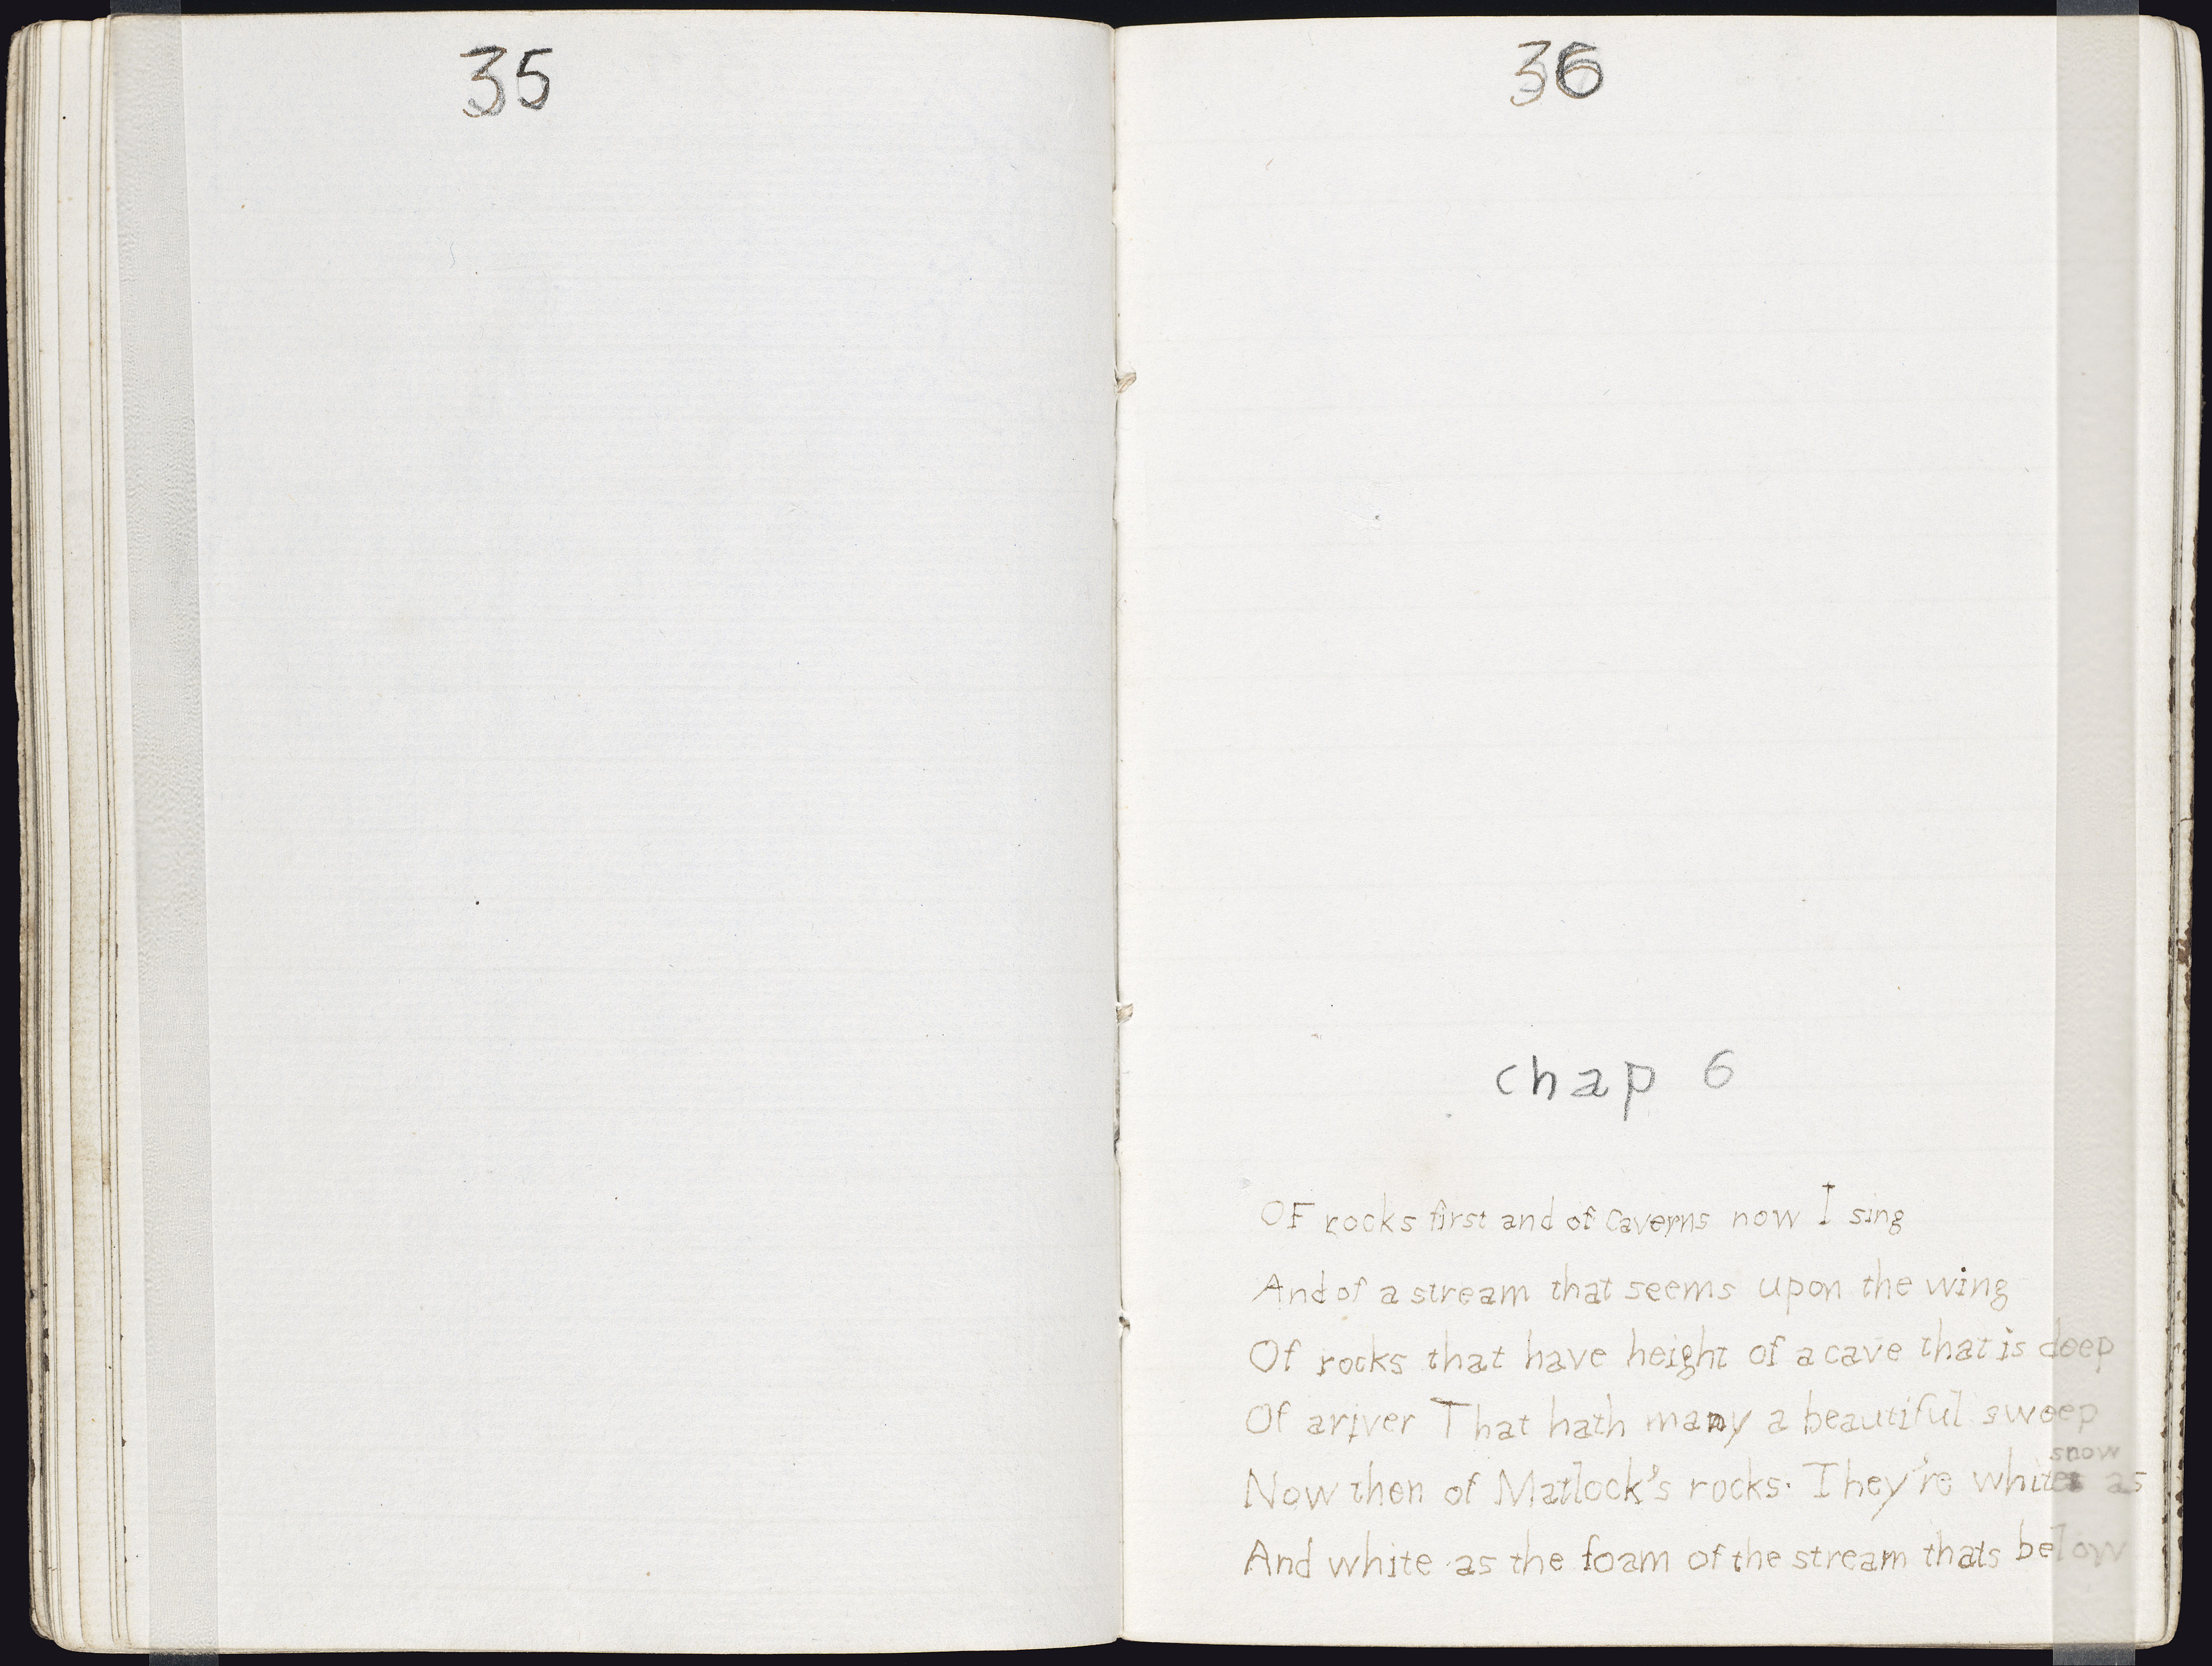 35
36
chap 6
OF rocks first and of caverns now I sing
And of a stream that seems upon the wing
Of rocks that have height of a cave that is deep
Of ariver That hath many a beautiful sweep
snow
Now then of Matlock's rocks. They're white as
And white as the foam of the stream thats below